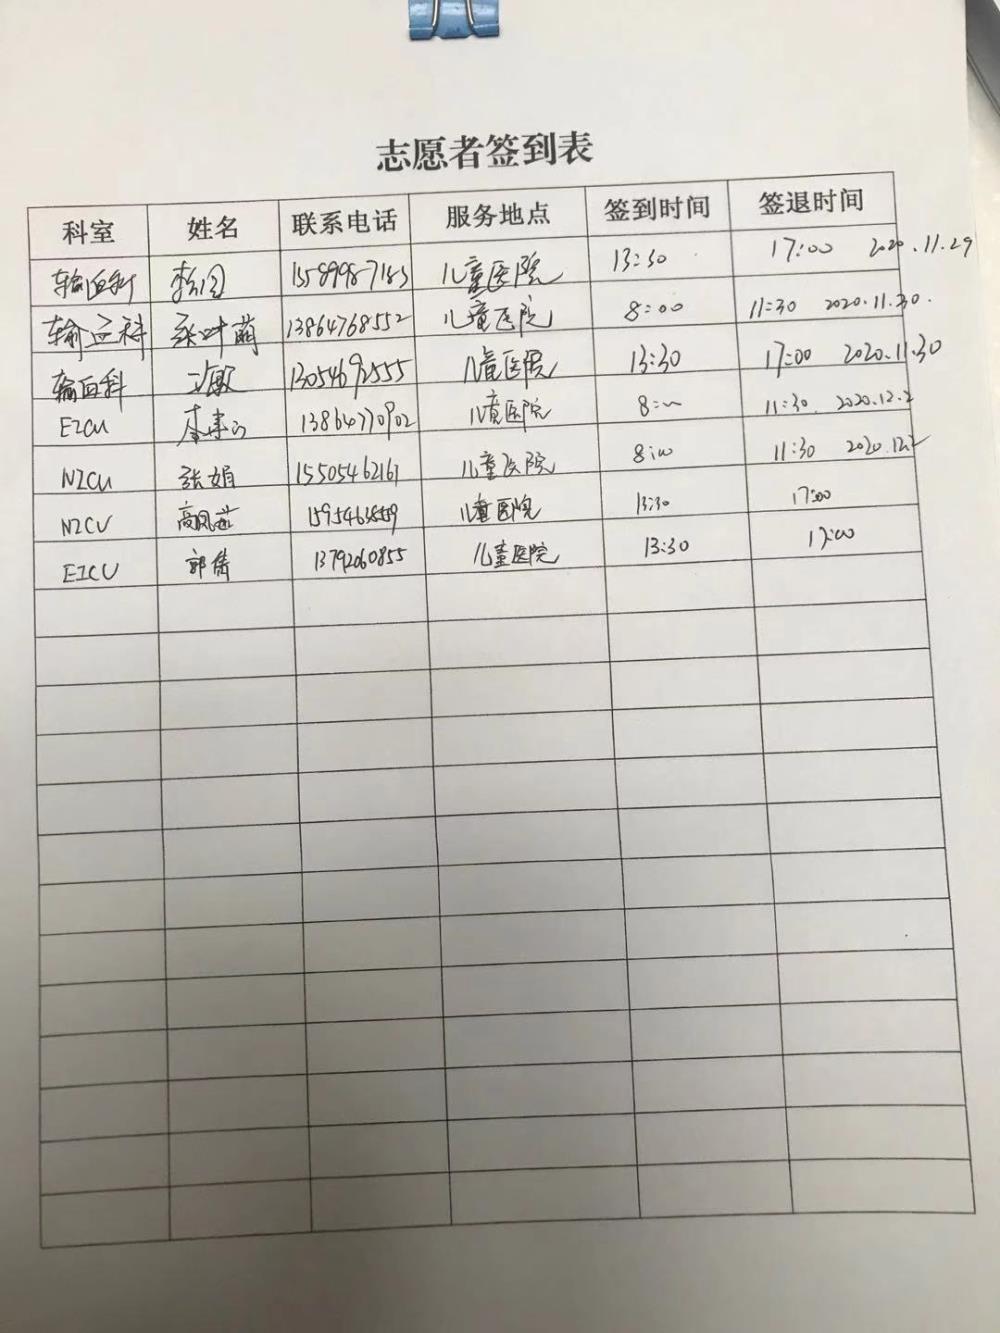 志愿者签到表
科室 姓名 联系电话 服务地点 签到时间 签退时间
输血科 儿童医院 13:30 17:00 2020.11.29
输血科 张叶萌 13864768552 儿童医院 8:00 11:30 2020.11.30.
输血科 王敏 13054692555 儿童医院 13:30 17:00 2020.11.30
EICU 13864770902 儿童医院 8:00 11:30 2020.12.2
NICU 张娟 15505462161 儿童医院 8:00 11:30 2020.12.2
NICU 儿童医院 13:30 17:00
EICU 郭倩 13792060855 儿童医院 13:30 17:00